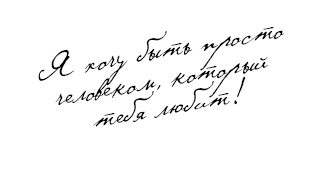 Я хочу быть просто
человеком, который
тебя любит!